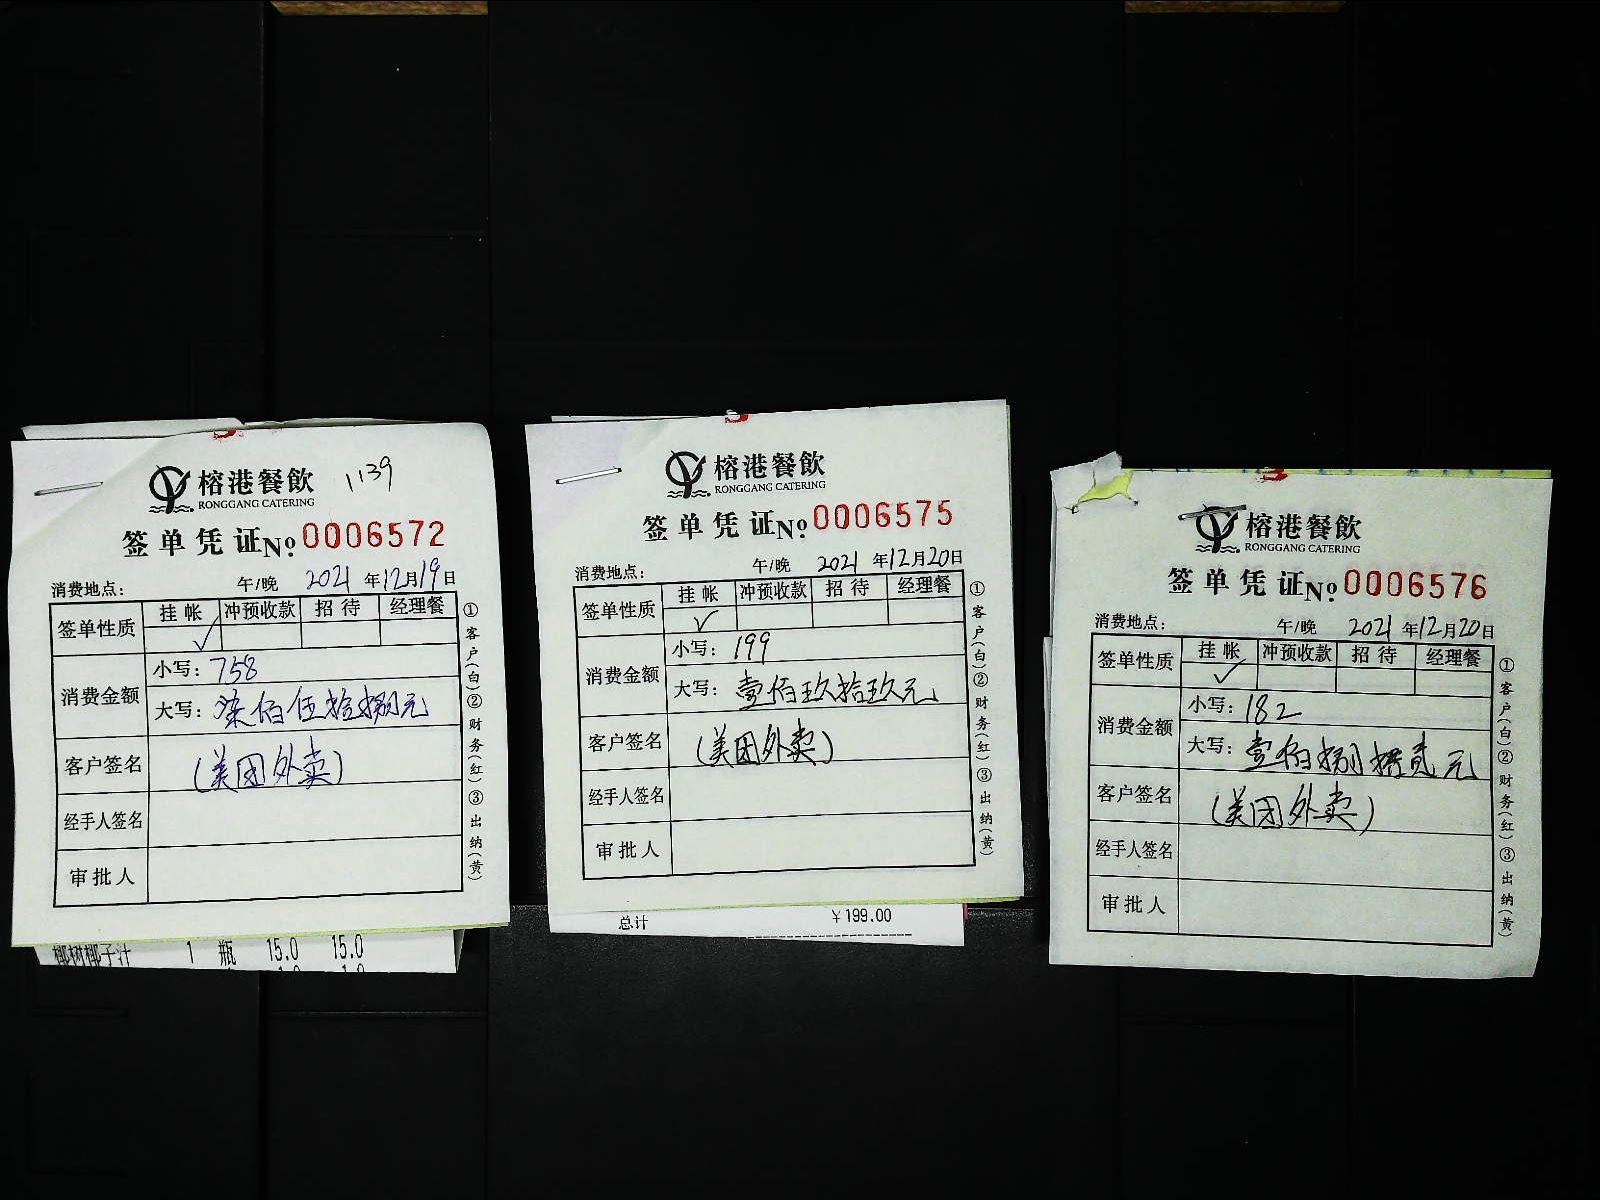 榕港餐飲
RONGGANG CATERING
1139
签单凭证 No. 0006572
消费地点： 午/晚 2021 年 12 月 19 日
签单性质 挂帐 冲预收款 招待 经理餐
✓
消费金额
小写：758
大写：柒佰伍拾捌元
客户签名 (美团外卖)
经手人签名
审批人
①客户(白)②财务(红)③出纳(黄)
椰树椰子汁 1 瓶 15.0 15.0
榕港餐飲
RONGGANG CATERING
签单凭证 No. 0006575
消费地点： 午/晚 2021 年 12 月 20 日
签单性质 挂帐 冲预收款 招待 经理餐
✓
消费金额
小写：199
大写：壹佰玖拾玖元
客户签名 (美团外卖)
经手人签名
审批人
①客户(白)②财务(红)③出纳(黄)
总计 ￥199.00
榕港餐飲
RONGGANG CATERING
签单凭证 No. 0006576
消费地点： 午/晚 2021 年 12 月 20 日
签单性质 挂帐 冲预收款 招待 经理餐
✓
消费金额
小写：182
大写：壹佰捌拾贰元
客户签名 (美团外卖)
经手人签名
审批人
①客户(白)②财务(红)③出纳(黄)